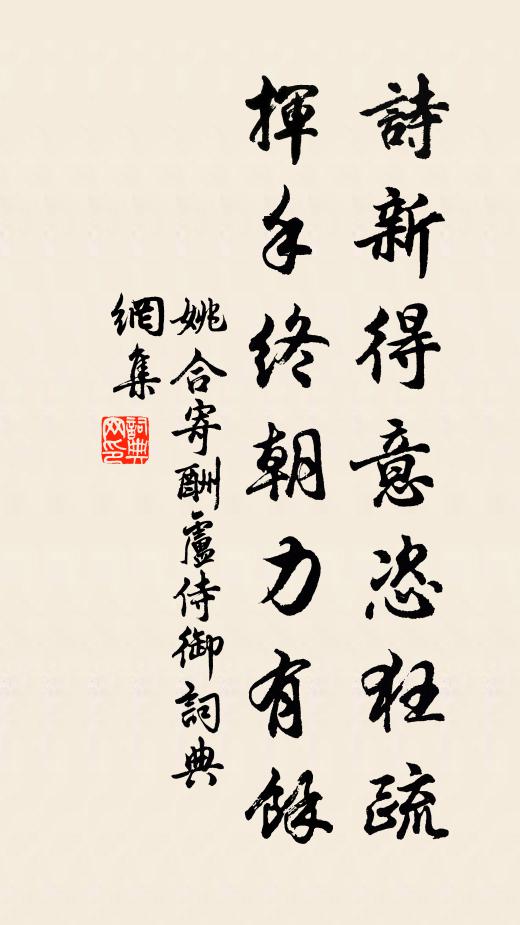 詩新得意恣狂疏
揮手終朝力有餘
姚合寄酬盧侍御詞典
網集
詞典網印